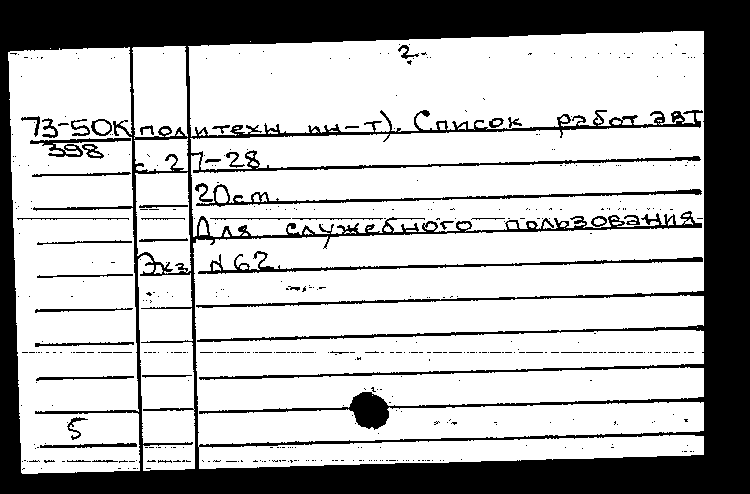 2
73-50К политехн. ин-т). Список работ авт
398 с. 27-28.
20см.
Для служебного пользования
Экз N62.
5